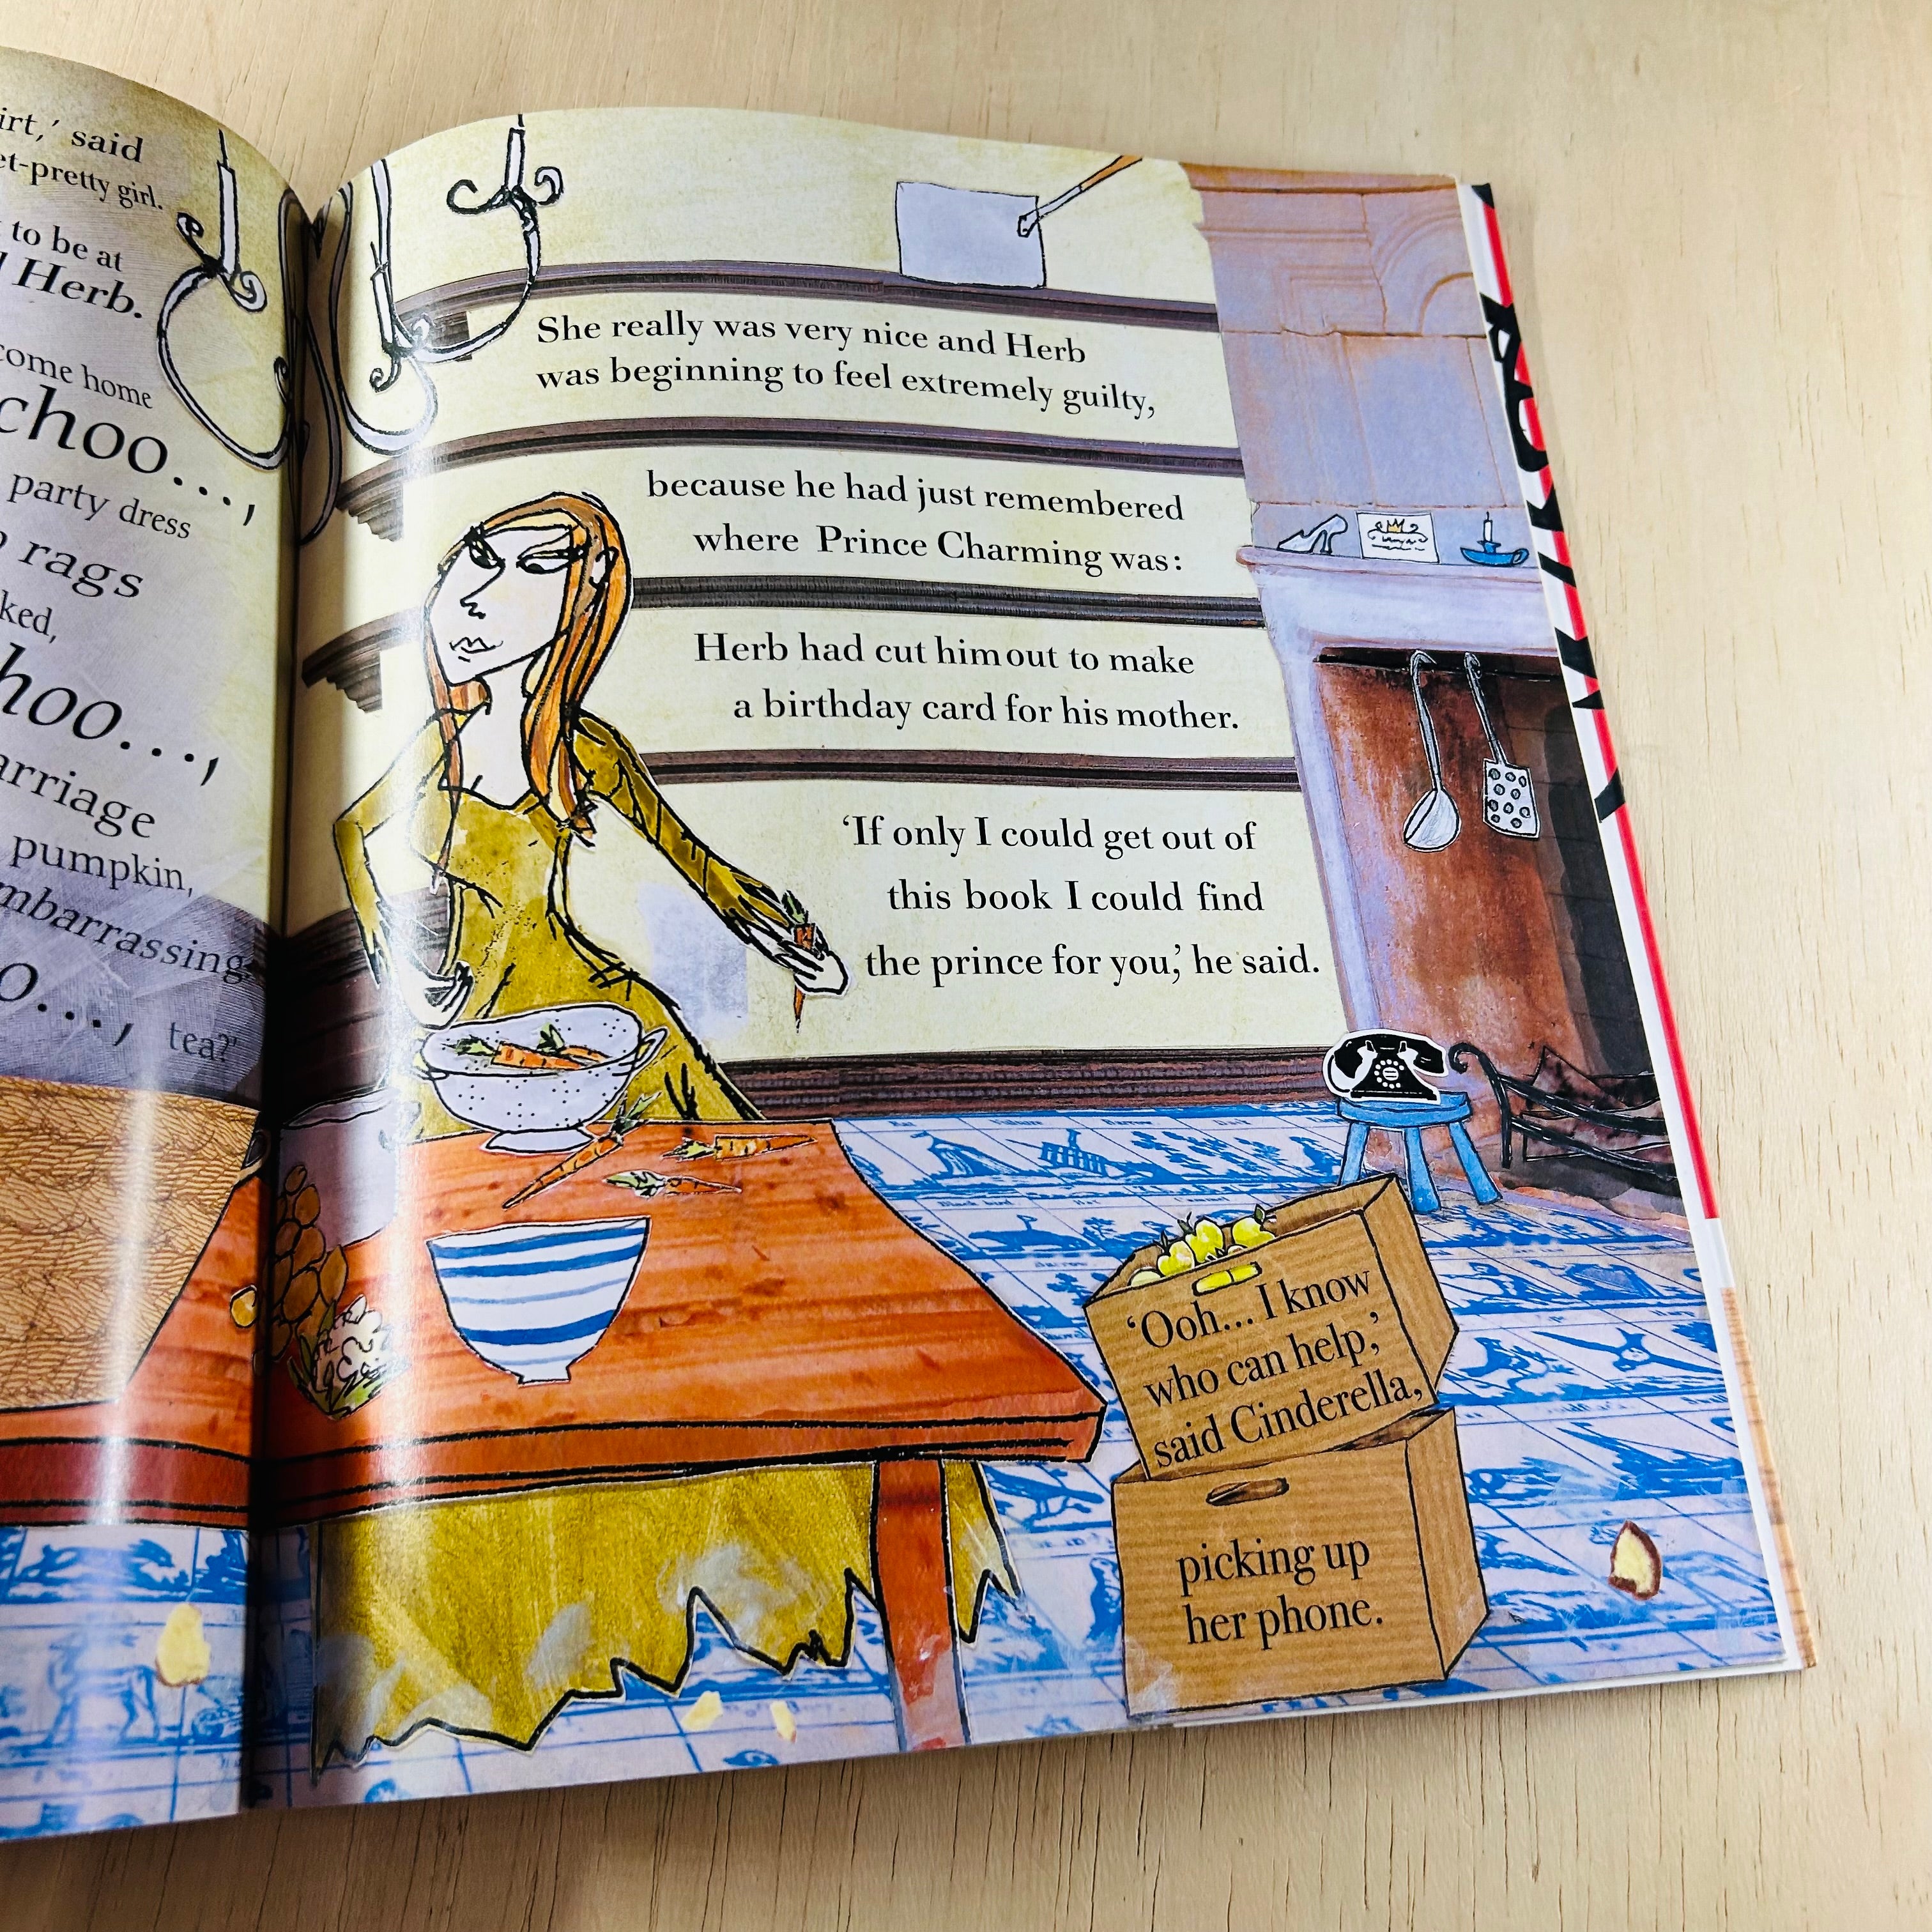 said
et-pretty girl.
to be at
Herb.
come home
choo...,
party dress
rags
ked,
hoo...,
arriage
pumpkin,
mbarrassing
o..., tea?'
She really was very nice and Herb
was beginning to feel extremely guilty,
because he had just remembered
where Prince Charming was:
Herb had cut him out to make
a birthday card for his mother.
'If only I could get out of
this book I could find
the prince for you,' he said.
'Ooh... I know
who can help,'
said Cinderella,
picking up
her phone.